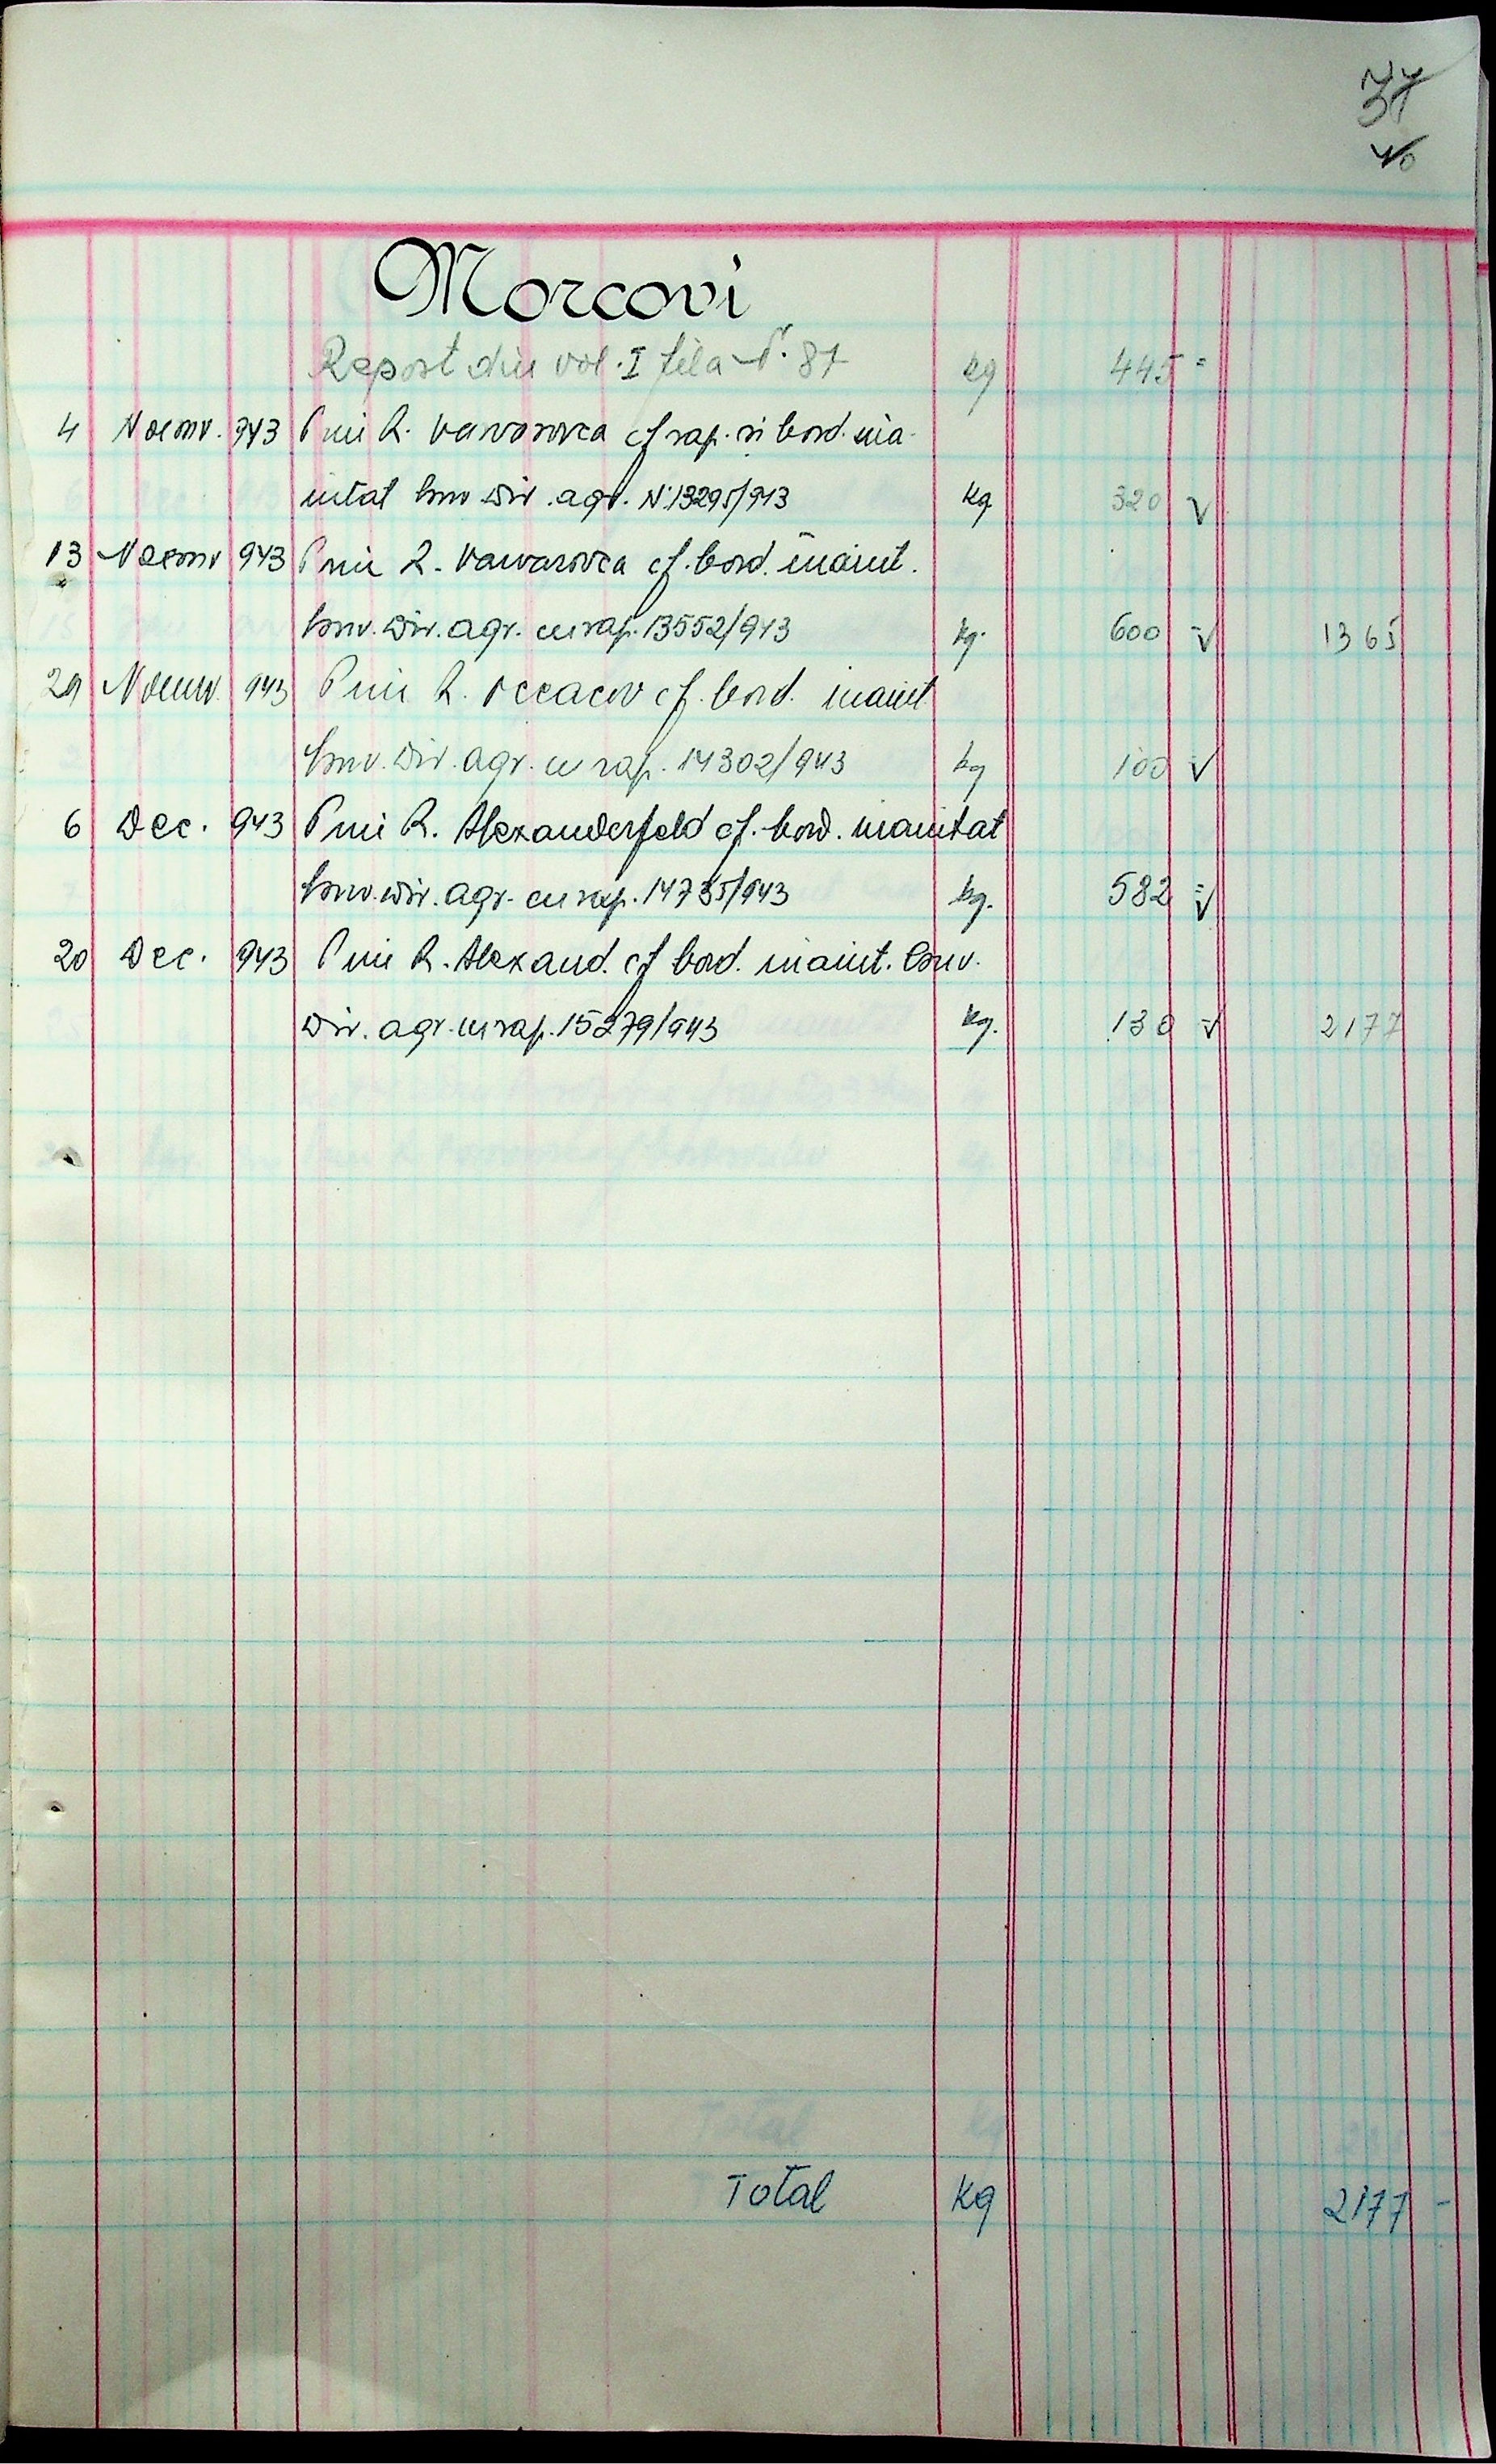 37
40
Morcovi
Report din vol. I fila No. 87 kg 445 =
4 Noemv. 943 Prii R. Varvarovca cf rap. si bord. ina-
intat Guv Dir. agr. No 13295/943 kg 320 v
13 Noemv 943 Prii R. Varvarovca cf. bord. înaint.
Guv. Dir. agr. cu rap. 13552/943 kg. 600 = v 1365
29 Noemv. 943 Prii R. Oceacov cf. bord. inaint
Guv. Dir. agr. cu rap. 14302/943 kg 100 v
6 Dec. 943 Prii R. Alexanderfeld cf. bord. inaintat
Guv. Dir. agr. cu rap. 14735/943 kg. 582 = v
20 Dec. 943 Prii R. Alexand. cf bord. inaint. Guv.
Dir. agr. cu rap. 15279/943 kg. 130 v 2177
Total kg 2177 -